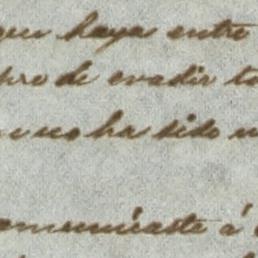 que haya entre
pre de evadir to
no ha sido u
comunicaste á